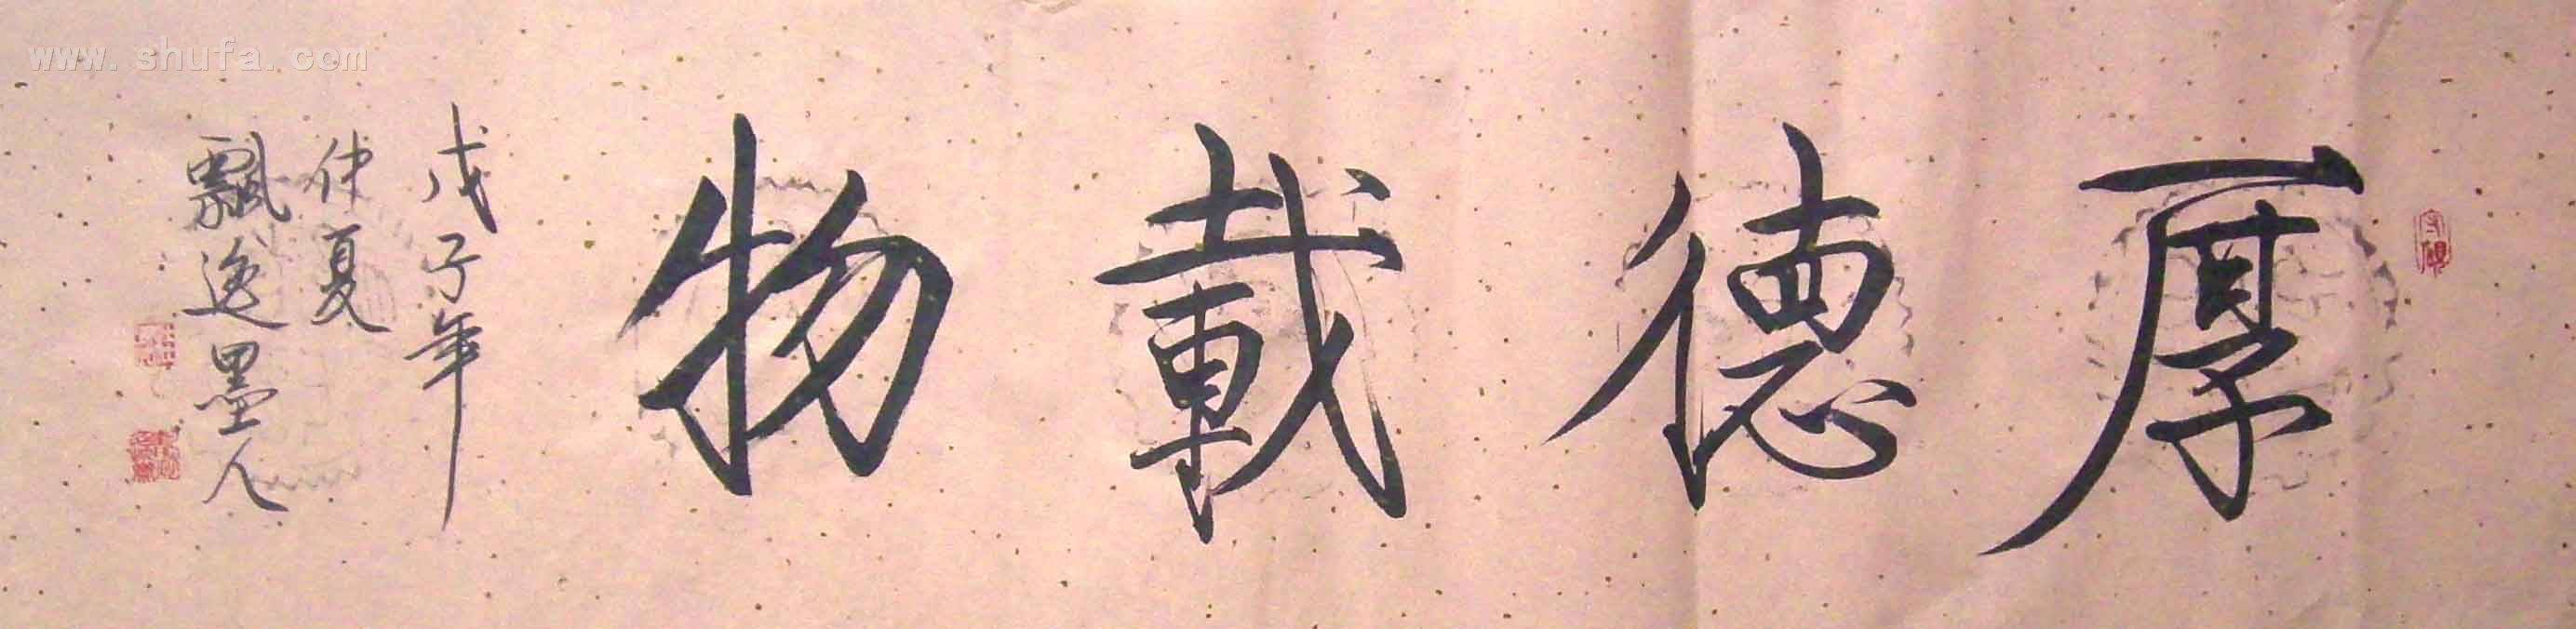 厚德載物
戊子年
仲夏
飄逸墨人
www.shufa.com